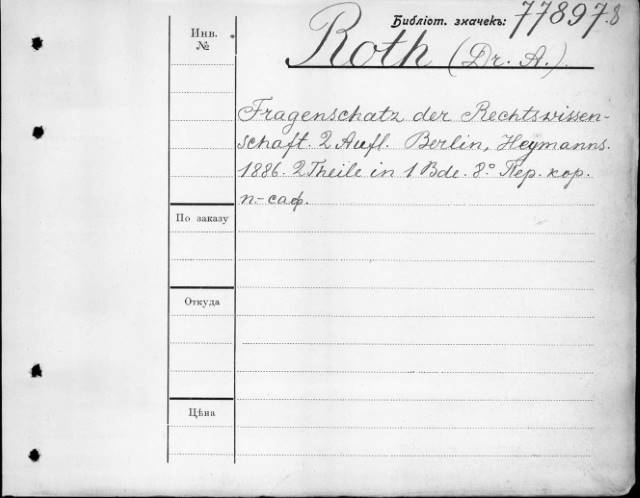 Библіот. значекъ: 77897.8
Инв.
№
Roth (Dr. A.).
Fragenschatz der Rechtswissen-
schaft. 2 Aufl. Berlin, Heymanns.
1886. 2 Theile in 1 Bde. 8° Пер. кор.
п.-саф.
По заказу
Откуда
Цѣна